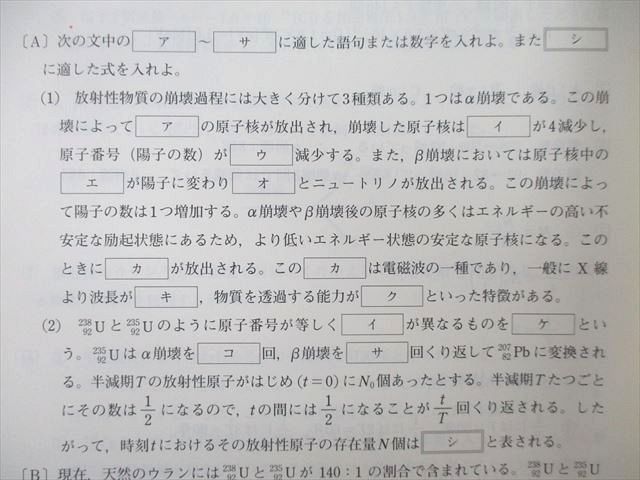 〔A〕次の文中の ア ～ サ に適した語句または数字を入れよ。また シ
に適した式を入れよ。
(1) 放射性物質の崩壊過程には大きく分けて3種類ある。1つはα崩壊である。この崩
壊によって ア の原子核が放出され，崩壊した原子核は イ が4減少し，
原子番号（陽子の数）が ウ 減少する。また，β崩壊においては原子核中の
エ が陽子に変わり オ とニュートリノが放出される。この崩壊によっ
て陽子の数は1つ増加する。α崩壊やβ崩壊後の原子核の多くはエネルギーの高い不
安定な励起状態にあるため，より低いエネルギー状態の安定な原子核になる。この
ときに カ が放出される。この カ は電磁波の一種であり，一般に X 線
より波長が キ ，物質を透過する能力が ク といった特徴がある。
(2) ²³⁸₉₂Uと²³⁵₉₂Uのように原子番号が等しく イ が異なるものを ケ とい
う。²³⁵₉₂Uはα崩壊を コ 回，β崩壊を サ 回くり返して²⁰⁷₈₂Pbに変換され
る。半減期Tの放射性原子がはじめ (t=0) にN₀個あったとする。半減期Tたつごと
にその数は1/2になるので，tの間には1/2になることがt/T回くり返される。した
がって，時刻tにおけるその放射性原子の存在量N個は シ と表される。
〔B〕現在，天然のウランには²³⁸₉₂Uと²³⁵₉₂Uが 140：1 の割合で含まれている。²³⁸₉₂Uと²³⁵₉₂U